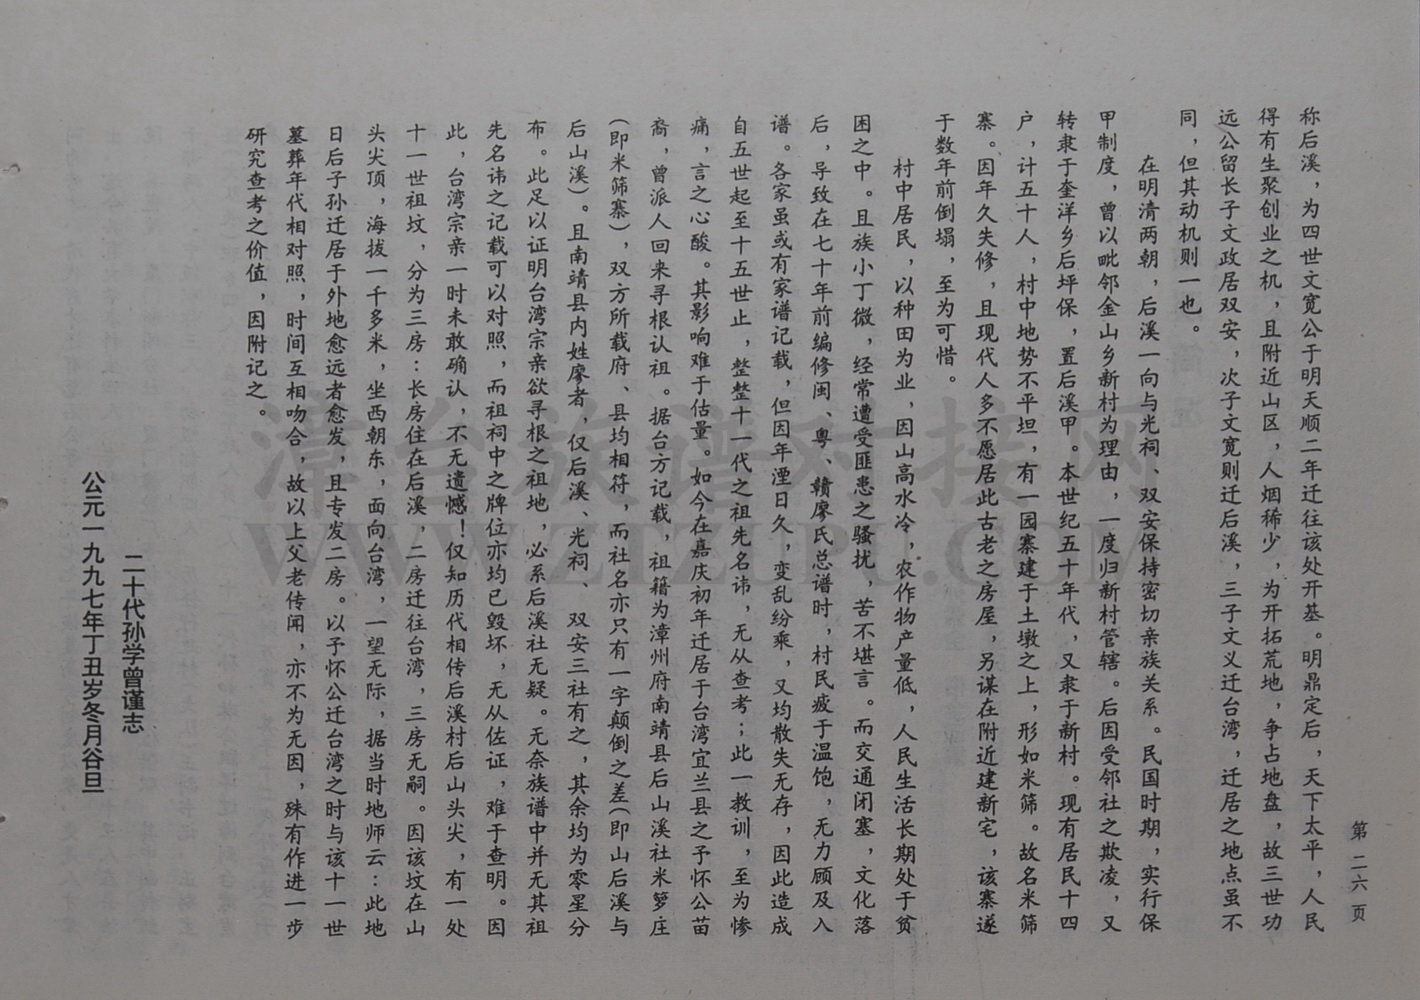 称后溪，为四世文宽公于明天顺二年迁往该处开基。明鼎定后，天下太平，人民
得有生聚创业之机，且附近山区，人烟稀少，为开拓荒地，争占地盘，故三世功
远公留长子文政居双安，次子文宽则迁后溪，三子文义迁台湾，迁居之地点虽不
同，但其动机则一也。
在明清两朝，后溪一向与光祠、双安保持密切亲族关系。民国时期，实行保
甲制度，曾以毗邻金山乡新村为理由，一度归新村管辖。后因受邻社之欺凌，又
转隶于奎洋乡后坪保，置后溪甲。本世纪五十年代，又隶于新村。现有居民十四
户，计五十人，村中地势不平坦，有一园寨建于土墩之上，形如米筛。故名米筛
寨。因年久失修，且现代人多不愿居此古老之房屋，另谋在附近建新宅，该寨遂
于数年前倒塌，至为可惜。
村中居民，以种田为业，因山高水冷，农作物产量低，人民生活长期处于贫
困之中。且族小丁微，经常遭受匪患之骚扰，苦不堪言。而交通闭塞，文化落
后，导致在七十年前编修闽、粤、赣廖氏总谱时，村民疲于温饱，无力顾及入
谱。各家虽或有家谱记载，但因年湮日久，变乱纷乘，又均散失无存，因此造成
自五世起至十五世止，整整十一代之祖先名讳，无从查考；此一教训，至为惨
痛，言之心酸。其影响难于估量。如今在嘉庆初年迁居于台湾宜兰县之予怀公苗
裔，曾派人回来寻根认祖。据台方记载，祖籍为漳州府南靖县后山溪社米箩庄
（即米筛寨），双方所载府、县均相符，而社名亦只有一字颠倒之差（即山后溪与
后山溪）。且南靖县内姓廖者，仅后溪、光祠、双安三社有之，其余均为零星分
布。此足以证明台湾宗亲欲寻根之祖地，必系后溪社无疑。无奈族谱中并无其祖
先名讳之记载可以对照，而祖祠中之牌位亦均已毁坏，无从佐证，难于查明。因
此，台湾宗亲一时未敢确认，不无遗憾！仅知历代相传后溪村后山头尖，有一处
十一世祖坟，分为三房：长房住在后溪，二房迁往台湾，三房无嗣。因该坟在山
头尖顶，海拔一千多米，坐西朝东，面向台湾，一望无际，据当时地师云：此地
日后子孙迁居于外地愈远者愈发，且专发二房。以予怀公迁台湾之时与该十一世
墓葬年代相对照，时间互相吻合，故以上父老传闻，亦不为无因，殊有作进一步
研究查考之价值，因附记之。
二十代孙学曾谨志
公元一九九七年丁丑岁冬月谷旦
第二六页
漳台族谱对接网
WWW.ZTZUPU.COM